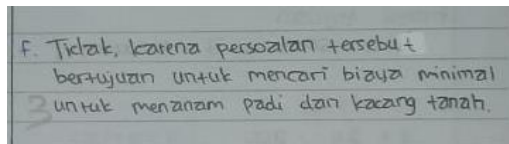 f. Tidak, karena persoalan tersebut
bertujuan untuk mencari biaya minimal
3 untuk menanam padi dan kacang tanah.